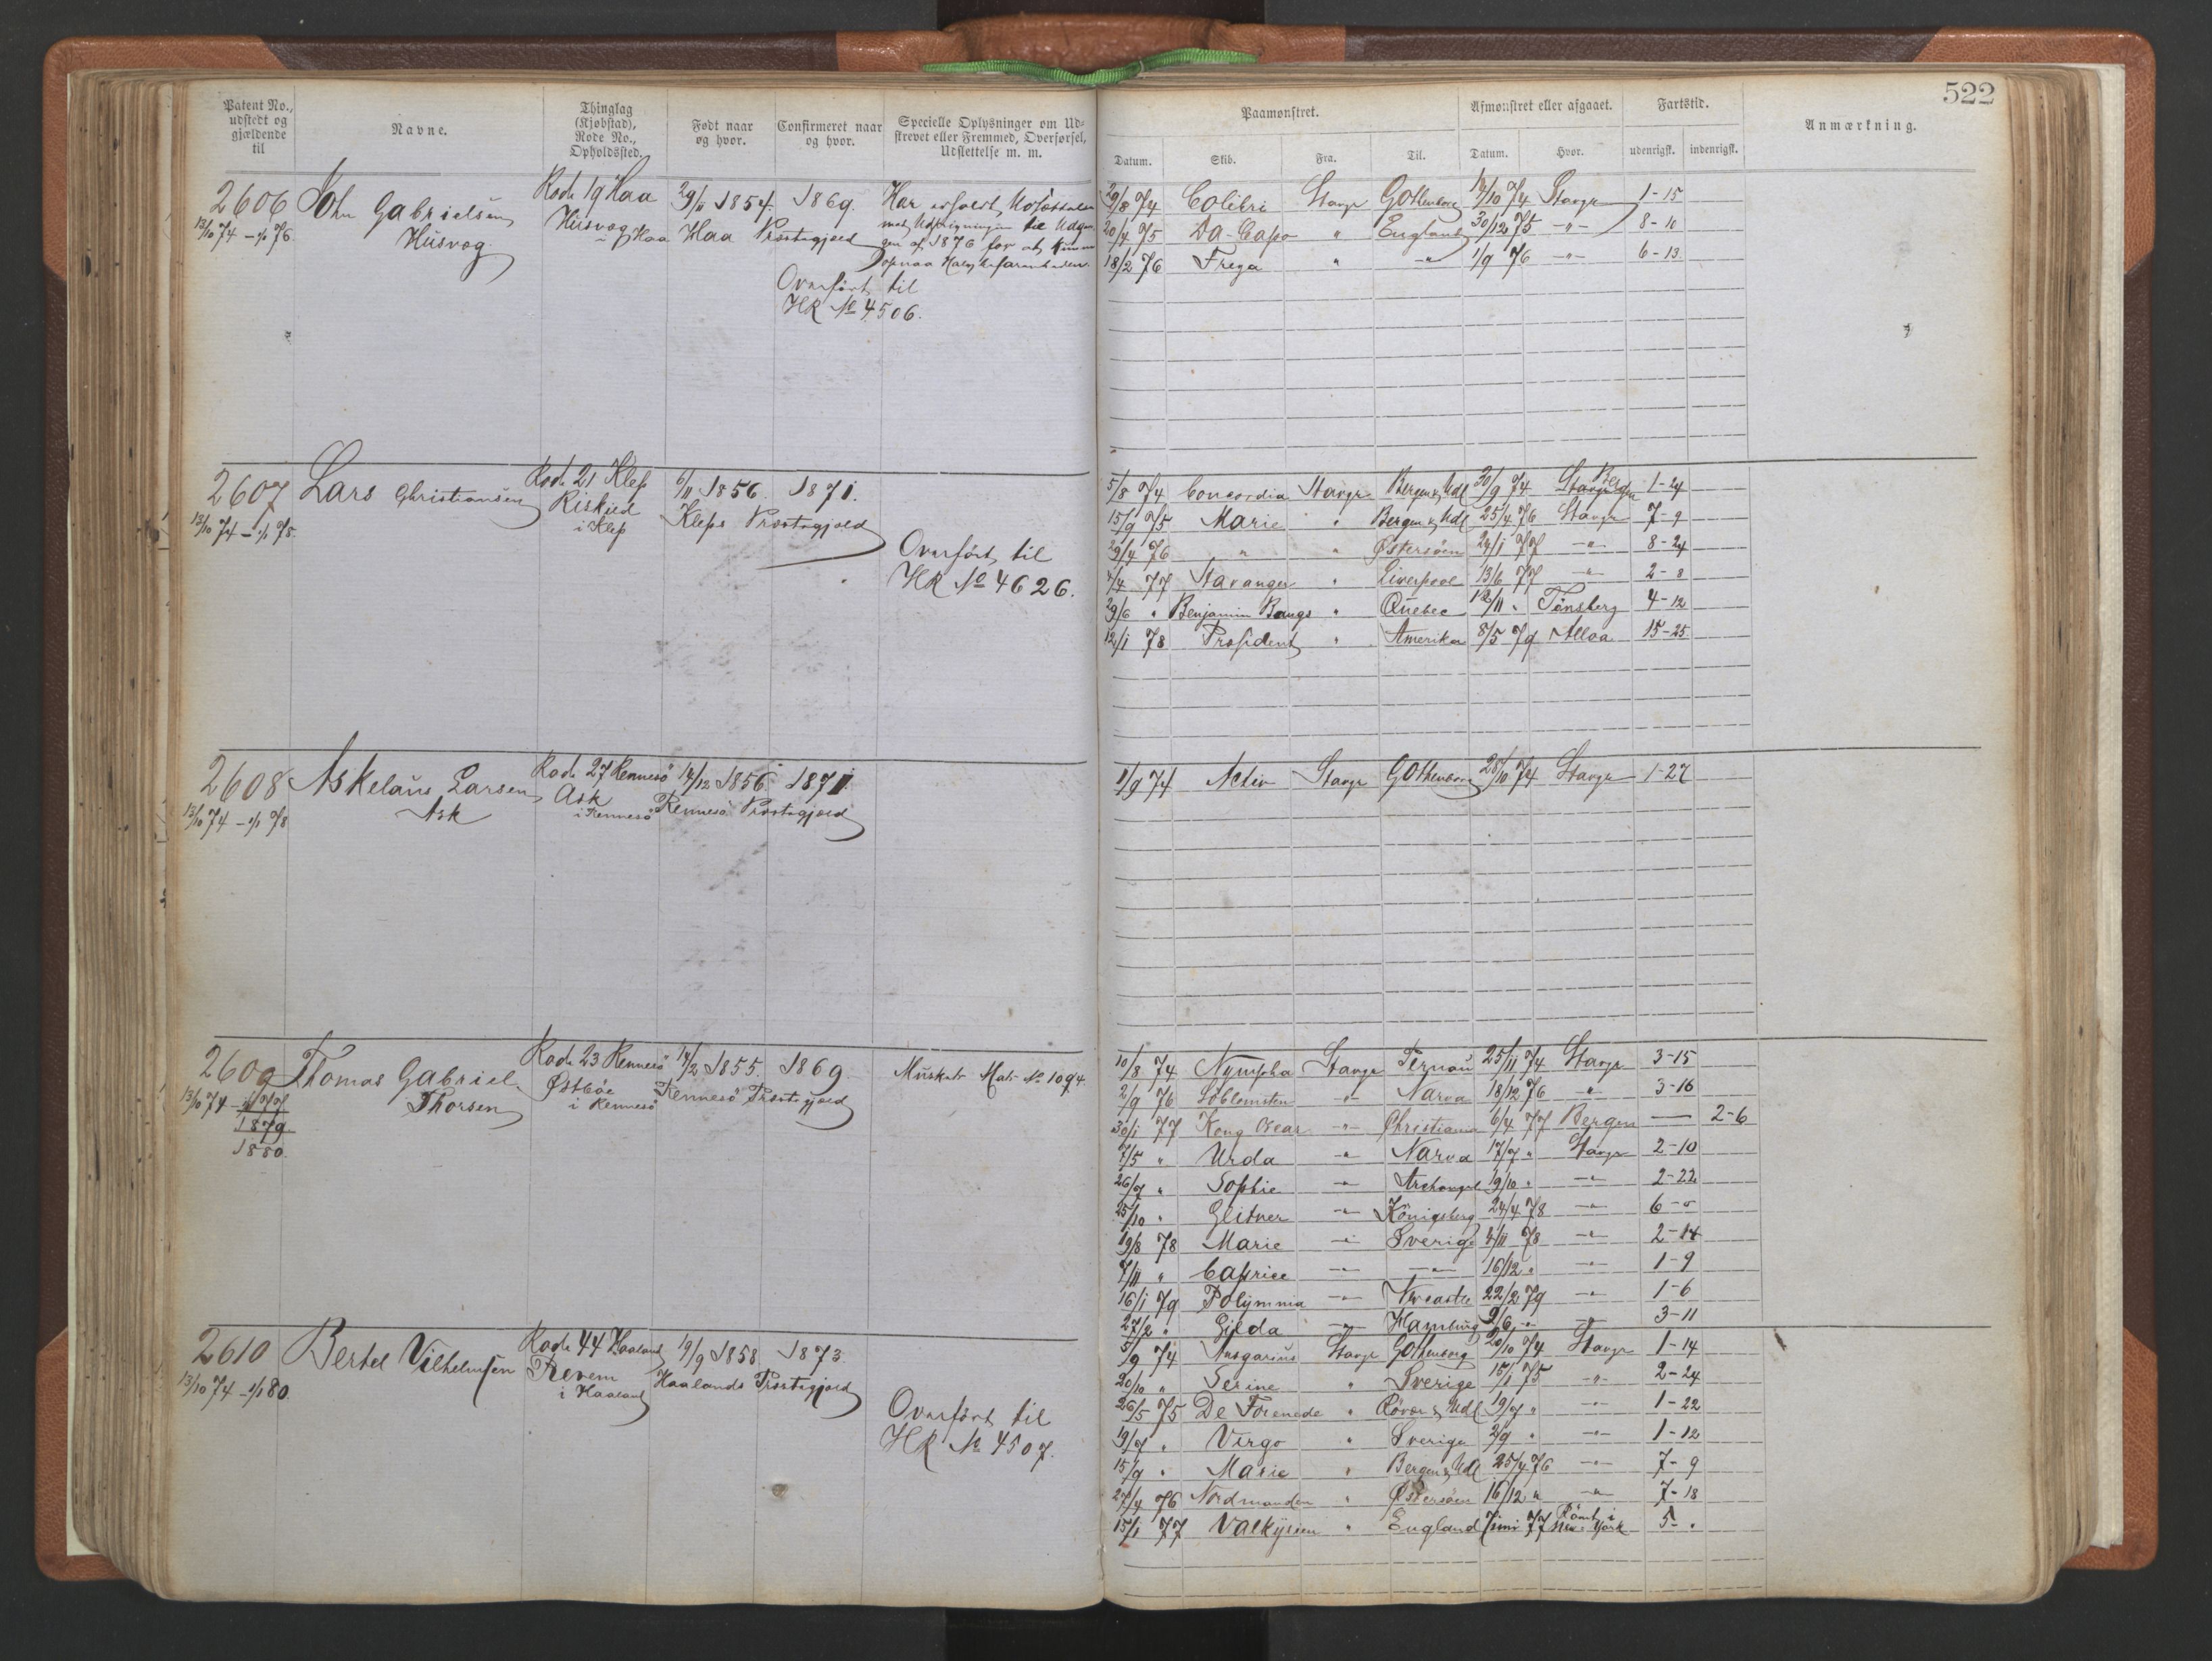 522
Patent No., udstedt og gjældende til
Navne.
Thinglag (Kjøbstad), Rode No., Opholdssted.
Født naar og hvor.
Confirmeret naar og hvor.
Specielle Oplysninger om Udskrevet eller Fremmed, Overførsel, Udslettelse m. m.
Paamønstret.
Afmønstret eller afgaaet.
Fartstid.
Anmærkning.
Datum. Skib. Fra. Til. Datum. Hvor. udenrigsk. indenrigsk.
2606 John Gabrielsen Rode 19 Haa 29/11 1854. 1869.
13/10 74 - 1/1 76 Husvog Husvog i Haa Haa Præstegjæld
til 1876 for at
Overført til
HR No 4506.
29/8 74 Colibri Stavgr Gothenborg 14/10 74 Stavgr 1-15
20/4 75 Da-Capo " England 30/12 75 -"- 8-10
18/2 76 Freya " -"- 1/9 76 -"- 6-13
2607 Lars Christiansen Rode 21 Klep 6/11 1856. 1871.
13/10 74 - 1/1 75. i Klep Kleps Præstegjæld
Overført til
HR No 4626.
5/8 74 Concordia Stavgr Bergen & Udl 30/9 74 Stavgr Bergen 1-24
15/9 75 Marie " Bergen & Udl 25/4 76 Stavgr 7-9
29/4 76 " " Østersøen 24/1 77 -"- 8-24
4/4 77 Stavanger " Liverpool 13/6 77 -"- 2-8
29/6 " Benjamin Bangs " Quebec 12/11 " Tønsberg 4-12
12/1 78 Præsident " Amerika 8/5 79 Alloa 15-25
2608 Askelaus Larsen Rode 27 Rennesö 14/12 1856 1871.
13/10 74 - 1/1 78 Ask Ask i Rennesö Rennesö Præstegjæld
1/9 74 Activ Stavgr Gothenborg 28/10 74 Stavgr 1-27
2609 Thomas Gabriel Rode 23 Rennesö 14/2 1855. 1869. Muskatr Matr No 1094
13/10 74 - 1/1 77 Thorsen Østbøe i Rennesö Rennesö Præstegjæld
1879.
1880.
10/8 74 Nympha Stavgr Pernau 25/11 74 Stavgr 3-15
2/9 76 Søblomsten -"- Narva 18/12 76 " 3-16
30/1 77 Kong Oscar -"- Christiania 6/4 77 Bergen — 2-6
7/5 " Urda -"- Narva 17/7 " Stavgr 2-10
26/7 " Sophie -"- Archangel 19/10 " -"- 2-22
25/10 " Glitner -"- Königsberg 24/4 78 -"- 6-0
19/8 78 Marie -"- Sverige 4/11 78 -"- 2-14
7/11 " Caprice -"- -"- 16/12 " -"- 1-9
16/1 79 Polymnia -"- Newcastle 22/2 79 -"- 1-6
27/2 " Gilda -"- Hamburg 9/6 " -"- 3-11
2610 Bertel Vilhelmsen Rode 44 Haaland 19/9 1858. 1873.
13/10 74 - 1/1 80. Revem i Haaland Haalands Præstegjæld
Overført til
HR No 4507.
5/9 74 Ansgarius Stavgr Gothenborg 20/10 74 Stavgr 1-14
20/10 " Serine " Sverige 15/1 75 -"- 2-24
26/5 75 De Forenede " Røvær & Udl 19/7 " -"- 1-22
19/7 " Virgo " Sverige 2/9 " -"- 1-12
15/9 " Marie " Bergen & Udl 25/4 76 -"- 7-9
27/4 76 Nordmanden " Østersøen 16/12 " -"- 7-18
15/1 77 Valkyrien " England Juni 77 Rømt i New York 5-"